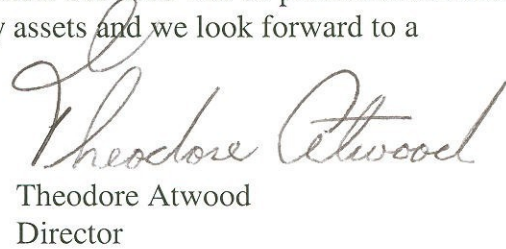 y assets and we look forward to a
Theodore Atwood
Theodore Atwood
Director